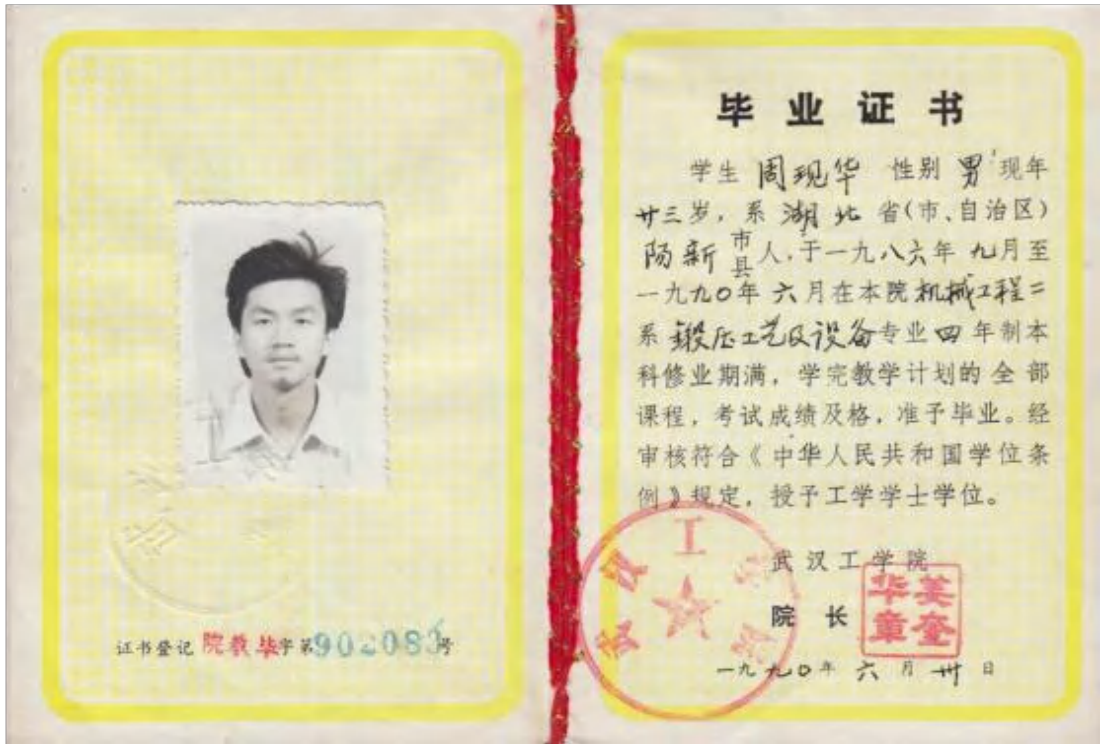 证书登记 院教毕字第902083号
毕业证书
学生 周现华 性别 男 现年
廿三岁，系 湖北 省(市、自治区)
阳新 市县 人，于一九八六年 九月至
一九九〇年 六月在本院 机械工程二
系 鍛压工艺及设备 专业 四 年制本
科修业期满，学完教学计划的全部
课程，考试成绩及格，准予毕业。经
审核符合《中华人民共和国学位条
例》规定，授予工学学士学位。
武汉工学院
院长
武汉工学院
华章
一九九〇年 六月 卅日